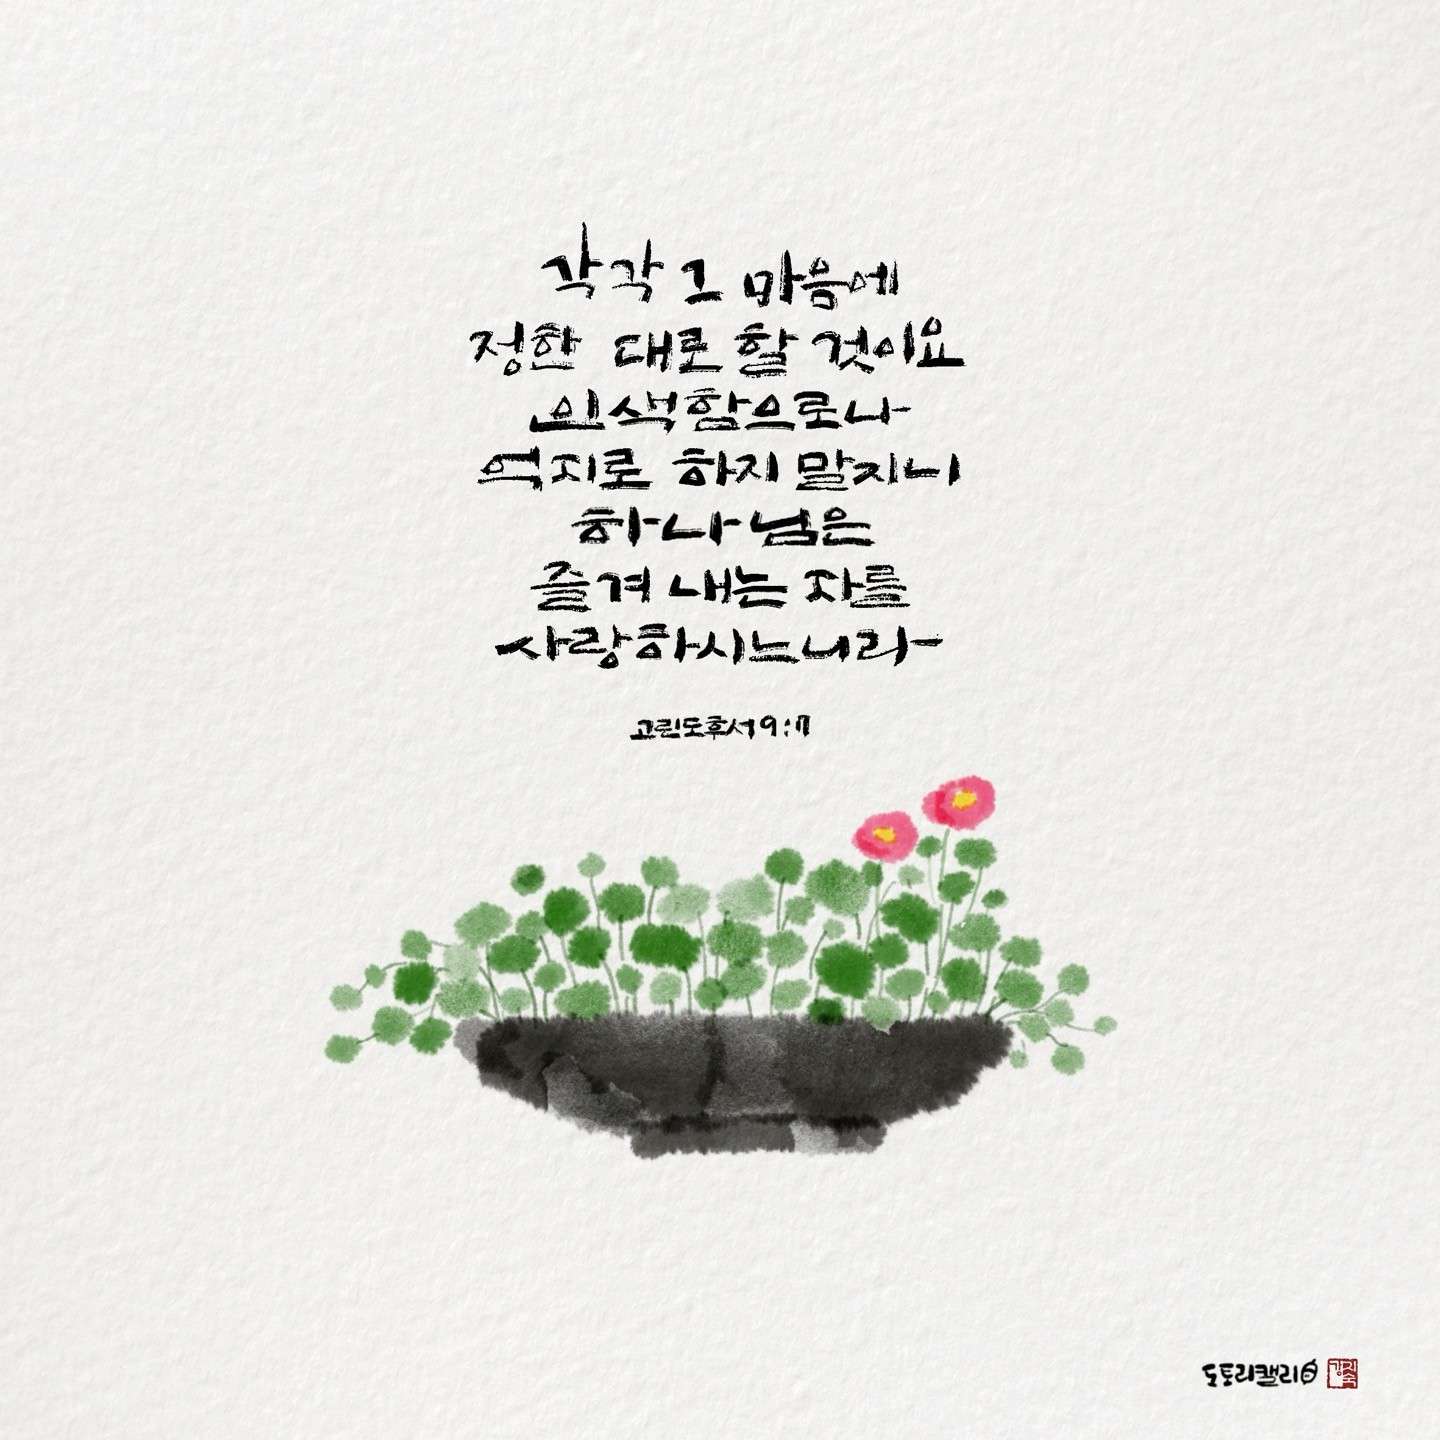 각각 그 마음에
정한 대로 할 것이요
인색함으로나
억지로 하지 말지니
하나님은
즐겨 내는 자를
사랑하시느니라
고린도후서 9:7
도토리캘리